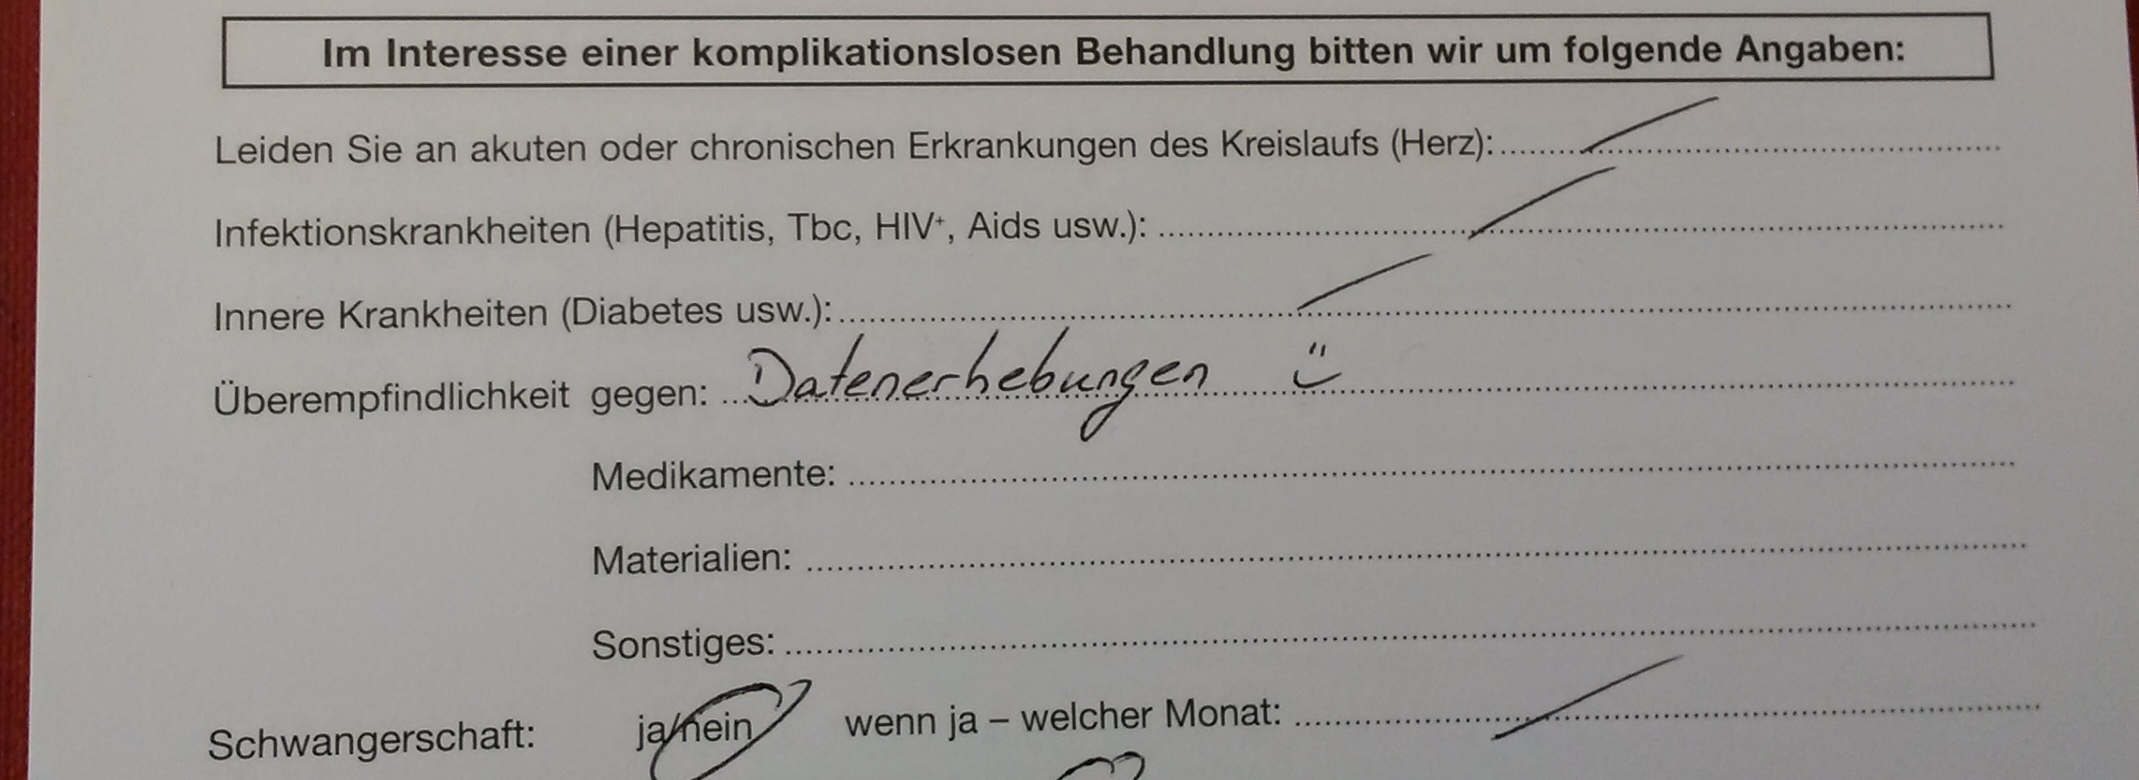 Im Interesse einer komplikationslosen Behandlung bitten wir um folgende Angaben:
Leiden Sie an akuten oder chronischen Erkrankungen des Kreislaufs (Herz):
Infektionskrankheiten (Hepatitis, Tbc, HIV⁺, Aids usw.):
Innere Krankheiten (Diabetes usw.):
Überempfindlichkeit gegen: Datenerhebungen
Medikamente:
Materialien:
Sonstiges:
Schwangerschaft: ja/nein wenn ja – welcher Monat: